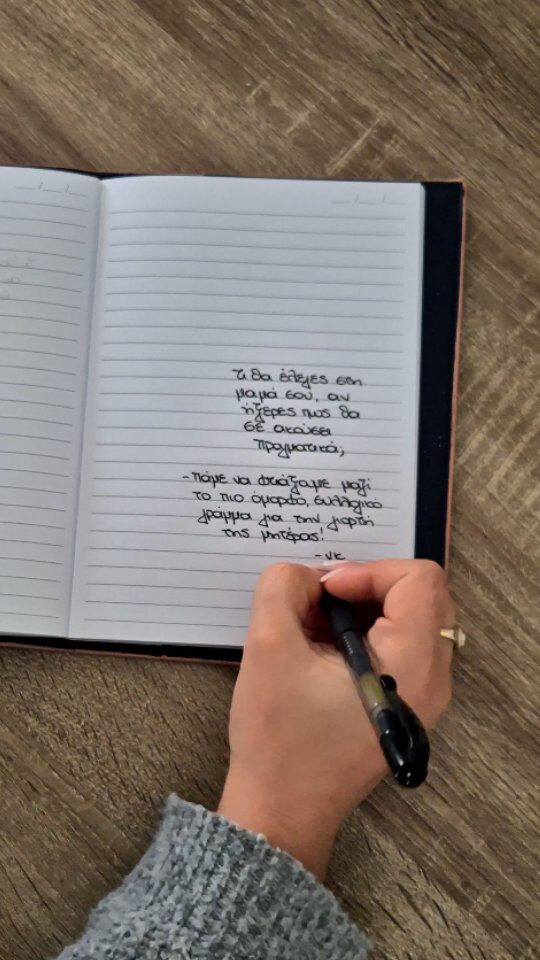 τι θα έλεγες στη
μαμά σου, αν
ήξερες πως θα
σε ακούσει
πραγματικά;
-πάμε να φτιάξουμε μαζί
το πιο όμορφο, συλλογικό
γράμμα για την γιορτή
της μητέρας!
-νκ